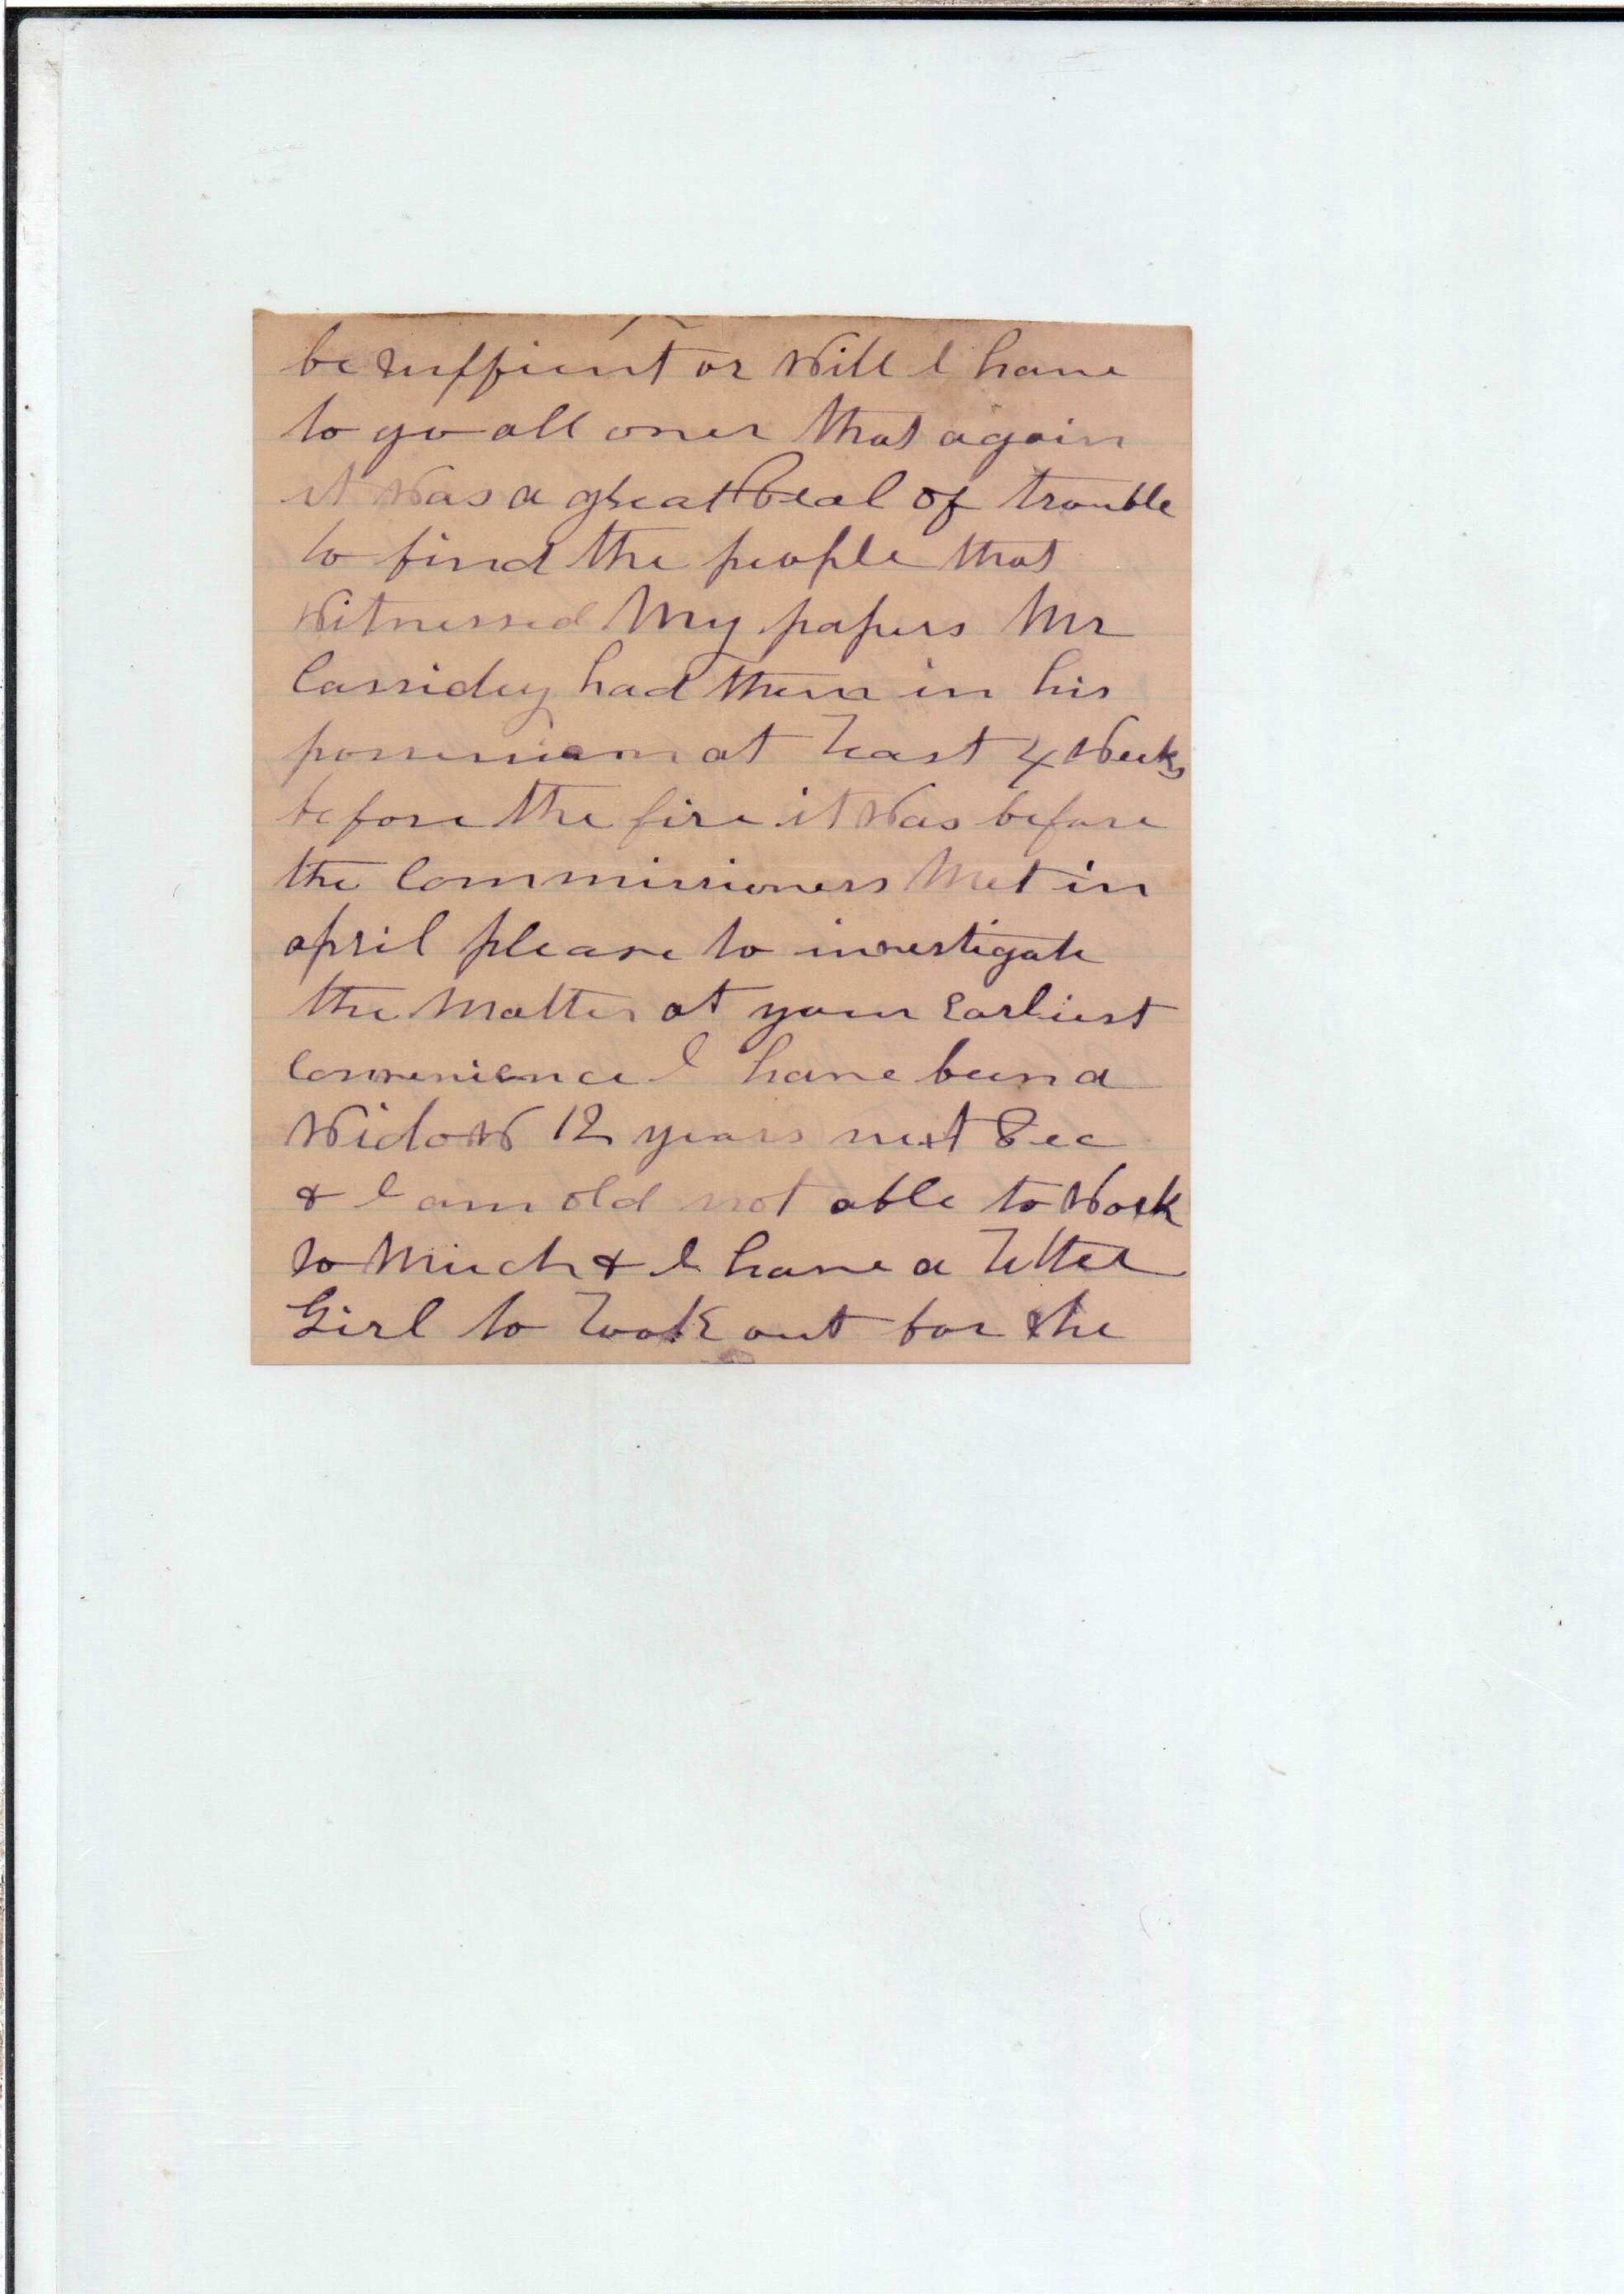 be suffient or Will I have
to go all over that again
it Was a great Deal of trouble
to find the people that
Witnessed My papers Mr
Cassidey had them in his
possession at Least 4 Weeks
before the fire it Was before
the Commissioners Met in
april please to investigate
the Matter at your Earliest
Convenience I have been a
WidoW 12 years next Dec
& I am old not able to Work
to Much & I have a Litter
Girl to Look out for the